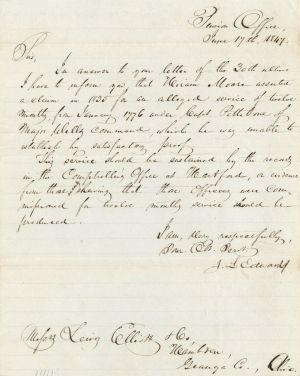 Pension Office,
June 17th, 1847.
Sir,
In answer to your letter of the 20th ultimo
I have to inform you that Hiram Moore asserted
a claim in 1836 for an alleged service of twelve
months, from January 1776 under Capt Pettibone of
Major Wells command, which he was unable to
establish by satisfactory proof.
This service should be sustained by the records
in the Comptrolling Office at Hartford, or evidence
from thence showing that those Officers were com-
missioned for twelve months service should be
produced.
I am, very respectfully,
Your Ob. Servt.
J. L. Edwards
Messrs Levy Elliott & Co,
Geauga Co., Ohio.